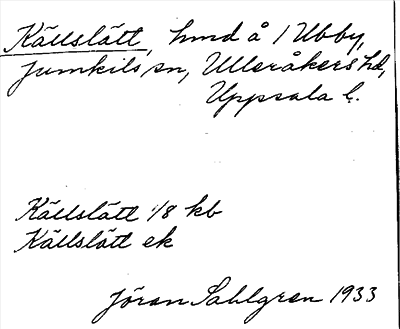 Källslätt, hmd å 1 Ubby,
Jumkils sn, Ulleråkers hd,
Uppsala l.
Källslätt 1/8 kb
Källslätt ek
Jöran Sahlgren 1933